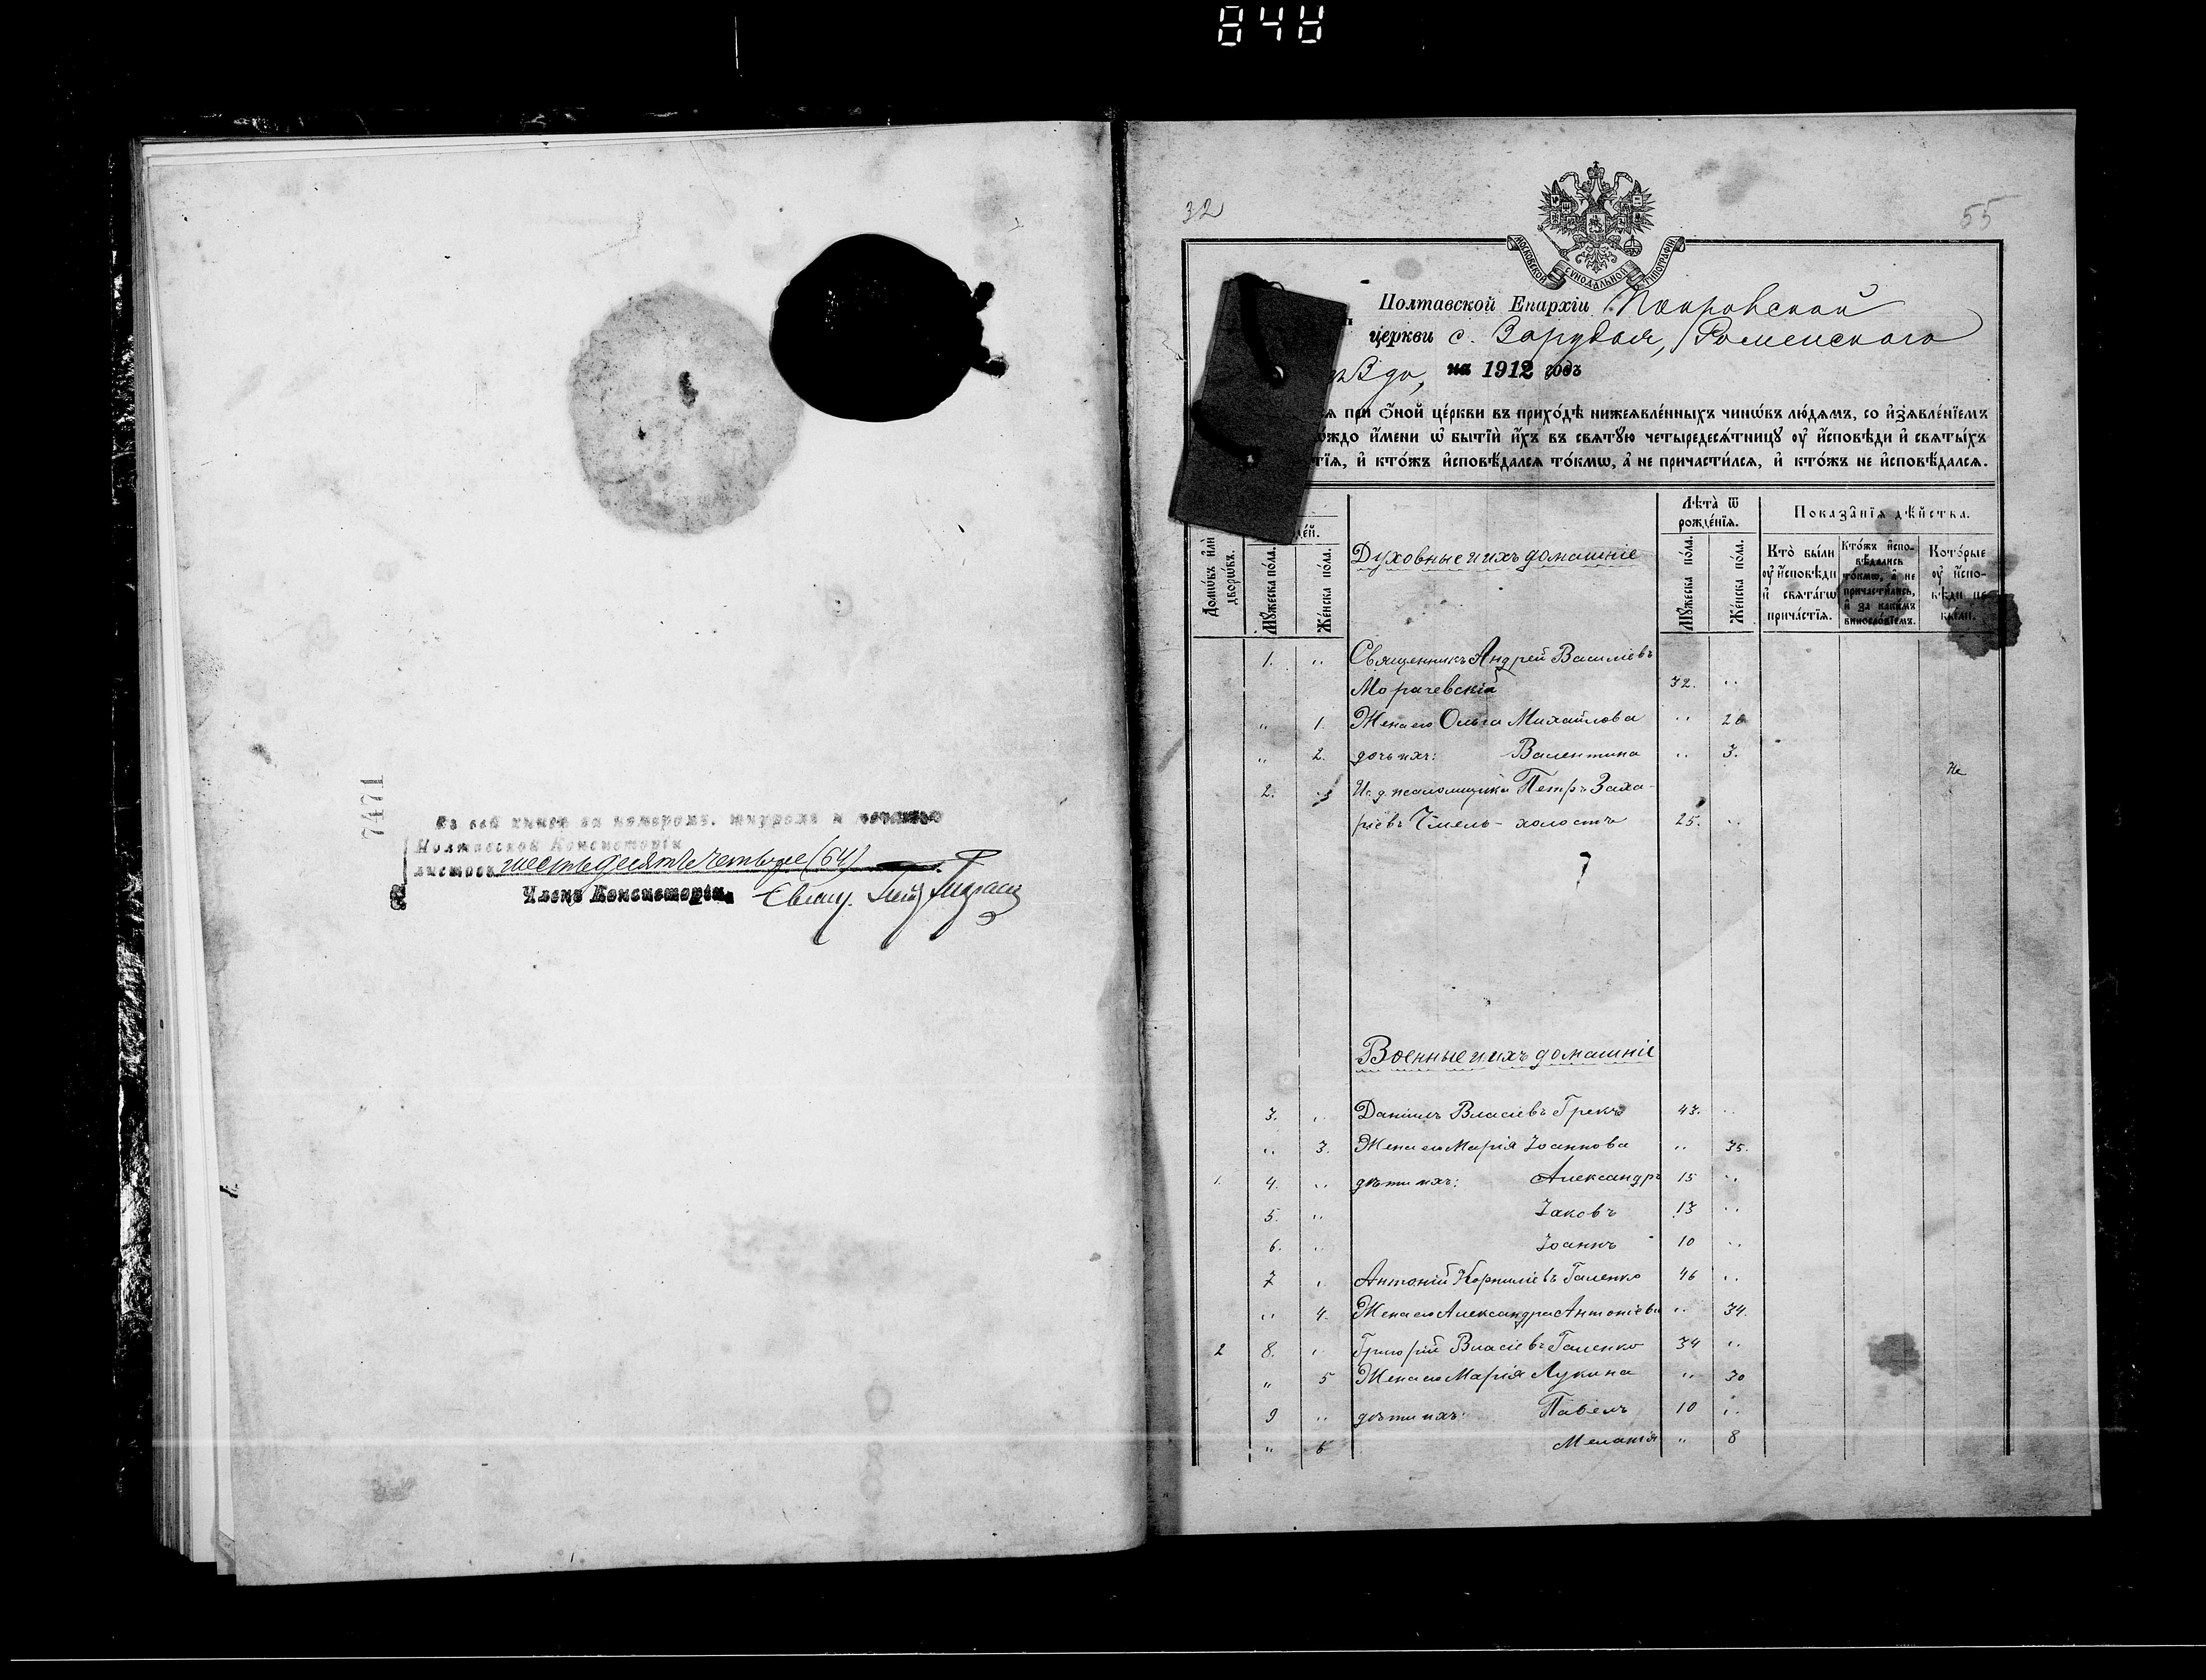 848
7471
въ сей книгѣ за номеромъ. шнуромъ и печатью
Полтавской Консисторіи
листовъ шестьдесятъ четыре (64)
Членъ Консисторіи
32
55
МОСКОВСКОЙ СѴНОДАЛЬНОЙ ТИПОГРАФІИ
Полтавской Епархіи Покровской
церкви с. Зарудья, Роменскаго
на 1912 годъ
при ѻ҆́ной це́ркви въ прихо́дѣ нижеꙗвле́нныхъ чинѡ́въ лю́дямъ, со и҆з̾ѧвле́нїемъ
и҆́мени ѡ҆ бытїѝ и҆́хъ въ свѧтꙋ́ю четыредесѧ́тницꙋ ᲂу҆ и҆́сповѣди и҆ свѧты́хъ
и҆ кто́жъ и҆сповѣ́далсѧ то́кмѡ, а҆ не причасти́лсѧ, и҆ кто́жъ не и҆сповѣ́далсѧ.
Домѡ́въ и҆лѝ дворѡ́въ.
Мꙋ́жеска по́ла.
Же́нска по́ла.
Духовные и ихъ домашніе
Лѣта̀ ѿ рожде́нїѧ.
Мꙋ́жеска по́ла.
Же́нска по́ла.
Показа̑нїѧ дѣ́йства.
Кто̀ бы́ли ᲂу҆ и҆́сповѣди и҆ свѧта́гѡ прича́стїѧ.
Кто́жъ и҆сповѣ́дались то́кмѡ, а҆ не причасти́лись, и҆ за каки́мъ виносло́вїемъ.
Кото́рые ᲂу҆ и҆́сповѣди не бы́ли.
1. " Священникъ Андрей Василіевъ
Морачевскій 32. "
" 1. Жена его Ольга Михайлова " 26
" 2. дочь ихъ: Валентина " 3.
Не
2. И. д. псаломщика Петръ Заха-
ріевъ Чмель - холостъ 25. "
Военные и ихъ домашніе
3. " Даніилъ Власіевъ Грекъ 43. "
" 3. Жена его Марія Іоаннова " 35.
1. 4. " дѣти ихъ: Александръ 15 "
5. " Іаковъ 13 "
6. " Іоаннъ 10 "
7 " Антоній Корниліевъ Галенко 46 "
" 4. Жена его Александра Антоніева " 34.
2 8. " Григорій Власіевъ Галенко 34 "
" 5 Жена его Марія Лукина " 30
9 " дѣти ихъ: Павелъ 10 "
" 6 Меланія " 8